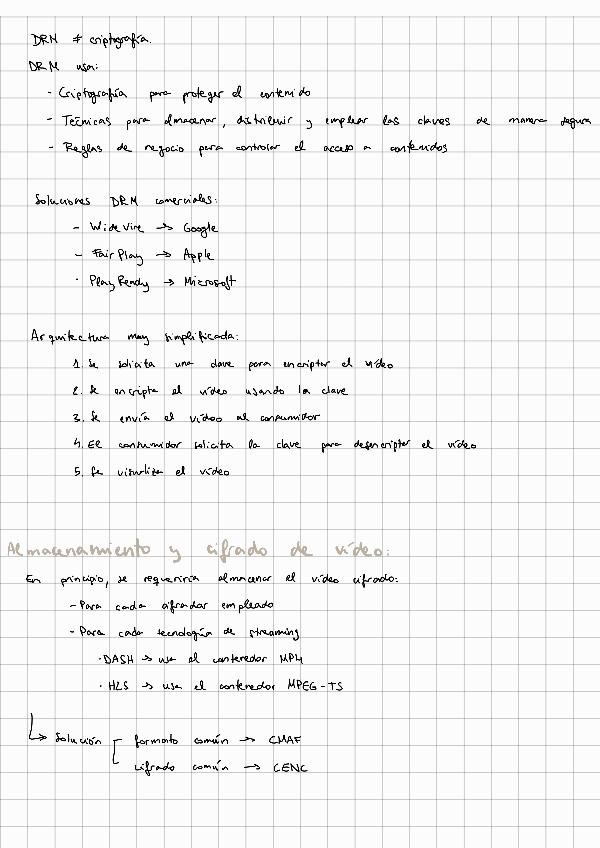 DRM ≠ criptografía.
DRM usa:
- Criptografía para proteger el contenido
- Técnicas para almacenar, distribuir y emplear las claves de manera segura
- Reglas de negocio para controlar el acceso a contenidos
Soluciones DRM comerciales:
- WideVine → Google
- FairPlay → Apple
· PlayReady → Microsoft
Arquitectura muy simplificada:
1. Se solicita una clave para encriptar el vídeo
2. Se encripta el vídeo usando la clave
3. Se envía el vídeo al consumidor
4. El consumidor solicita la clave para desencriptar el vídeo
5. Se visualiza el vídeo
Almacenamiento y cifrado de vídeo:
En principio, se requeriría almacenar el vídeo cifrado:
- Para cada cifrador empleado
- Para cada tecnología de streaming
· DASH → usa el contenedor MP4
· HLS → usa el contenedor MPEG-TS
↳ Solución [ formato común → CMAF
cifrado común → CENC